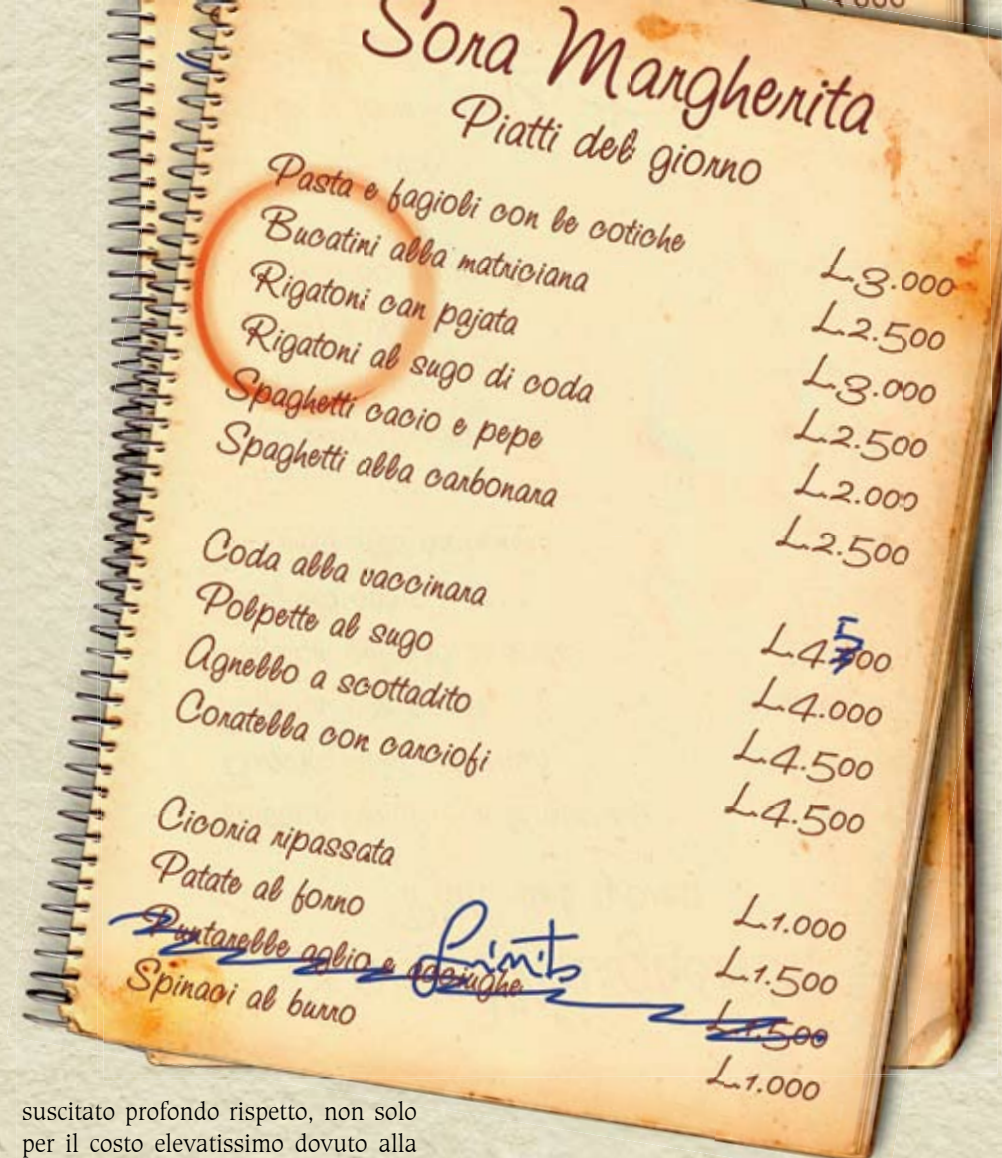 Sora Margherita
Piatti del giorno
Pasta e fagioli con le cotiche L.3.000
Bucatini alla matriciana L.2.500
Rigatoni can pajata L.3.000
Rigatoni al sugo di coda L.2.500
Spaghetti cacio e pepe L.2.000
Spaghetti alla carbonara L.2.500
Coda alla vaccinara L.4.500
Polpette al sugo L.4.000
Agnello a scottadito L.4.500
Coratella con carciofi L.4.500
Cicoria ripassata L.1.000
Patate al forno L.1.500
Puntarelle aglio e acciughe L.1.500
finito
Spinaci al burro L.1.000
suscitato profondo rispetto, non solo
per il costo elevatissimo dovuto alla